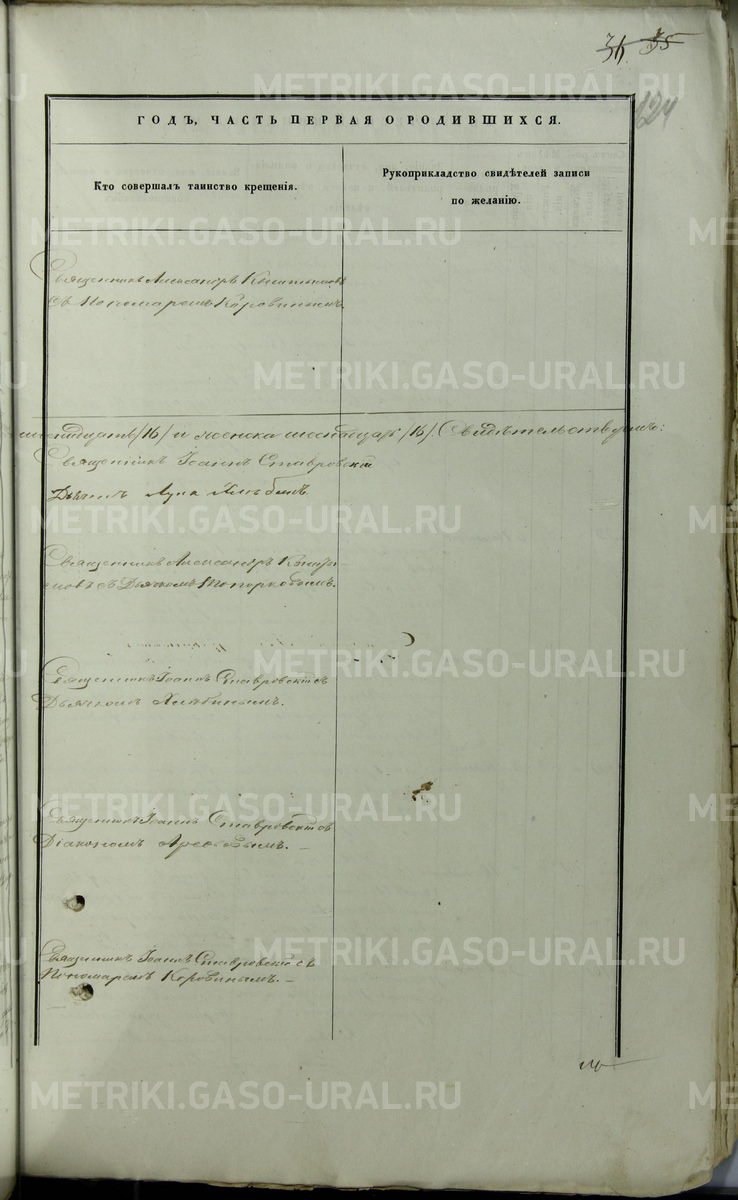 35
124
ГОДЪ, ЧАСТЬ ПЕРВАЯ О РОДИВШИХСЯ.
Кто совершалъ таинство крещенія.
Рукоприкладство свидѣтелей записи
по желанію.
Священникъ Александръ
съ Пономаремъ Коровинымъ.
/16/ и женска шестнадцать /16/. Свидѣтельствуемъ:
Священникъ Іоаннъ Ставровскій
Дьячекъ Лука Хлѣбинъ.
Священникъ Александръ
съ Дьячкомъ Топорковымъ.
Священникъ Іоаннъ Ставровскій съ
Дьячкомъ Хлѣбинымъ.
Священникъ Іоаннъ Ставровскій съ
Діакономъ
Священникъ Іоаннъ Ставровскій съ
Пономаремъ Коровинымъ.
METRIKI.GASO-URAL.RU